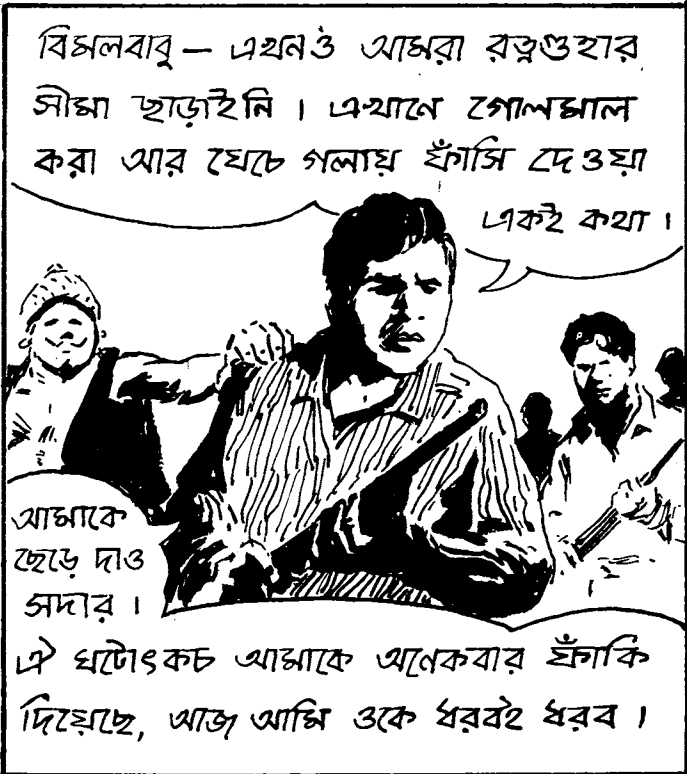 বিমলবাবু — এখনও আমরা রত্নগুহার
সীমা ছাড়াইনি । এখানে গোলমাল
করা আর যেচে গলায় ফাঁসি দেওয়া
একই কথা ।
আমাকে
ছেড়ে দাও
সর্দার ।
ঐ ঘটোৎকচ আমাকে অনেকবার ফাঁকি
দিয়েছে, আজ আমি ওকে ধরবই ধরব ।